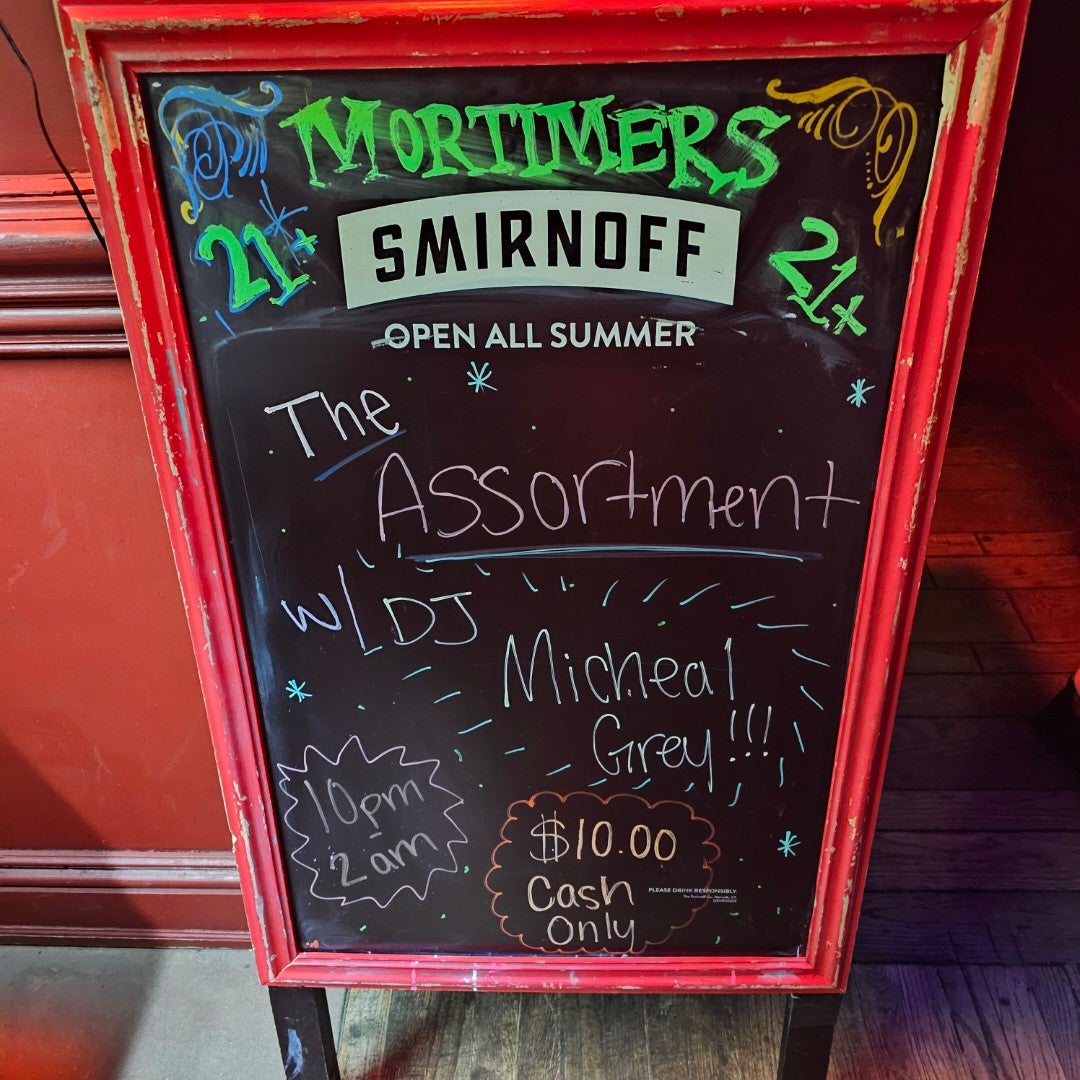 MORTIMERS
21+
SMIRNOFF
21+
OPEN ALL SUMMER
The
Assortment
w/ DJ
Micheal
Grey!!!
10pm
-
2am
$10.00
Cash
Only
PLEASE DRINK RESPONSIBLY.